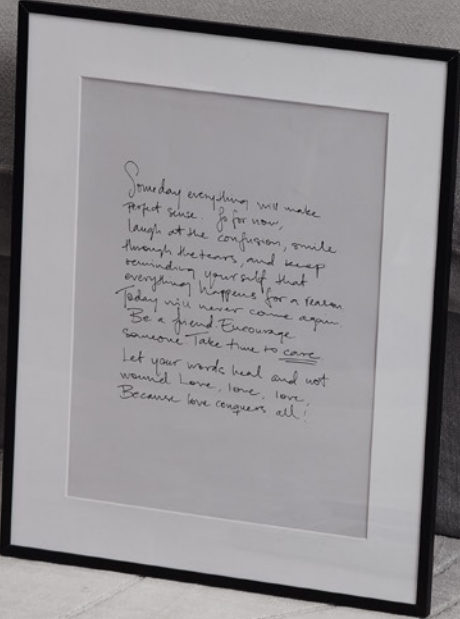 Someday everything will make
perfect sense. So for now,
laugh at the confusion, smile
through the tears, and keep
reminding yourself that
everything happens for a reason.
Today will never come again.
Be a friend. Encourage
someone. Take time to care.
Let your words heal and not
wound. Love, love, love,
Because love conquers all!